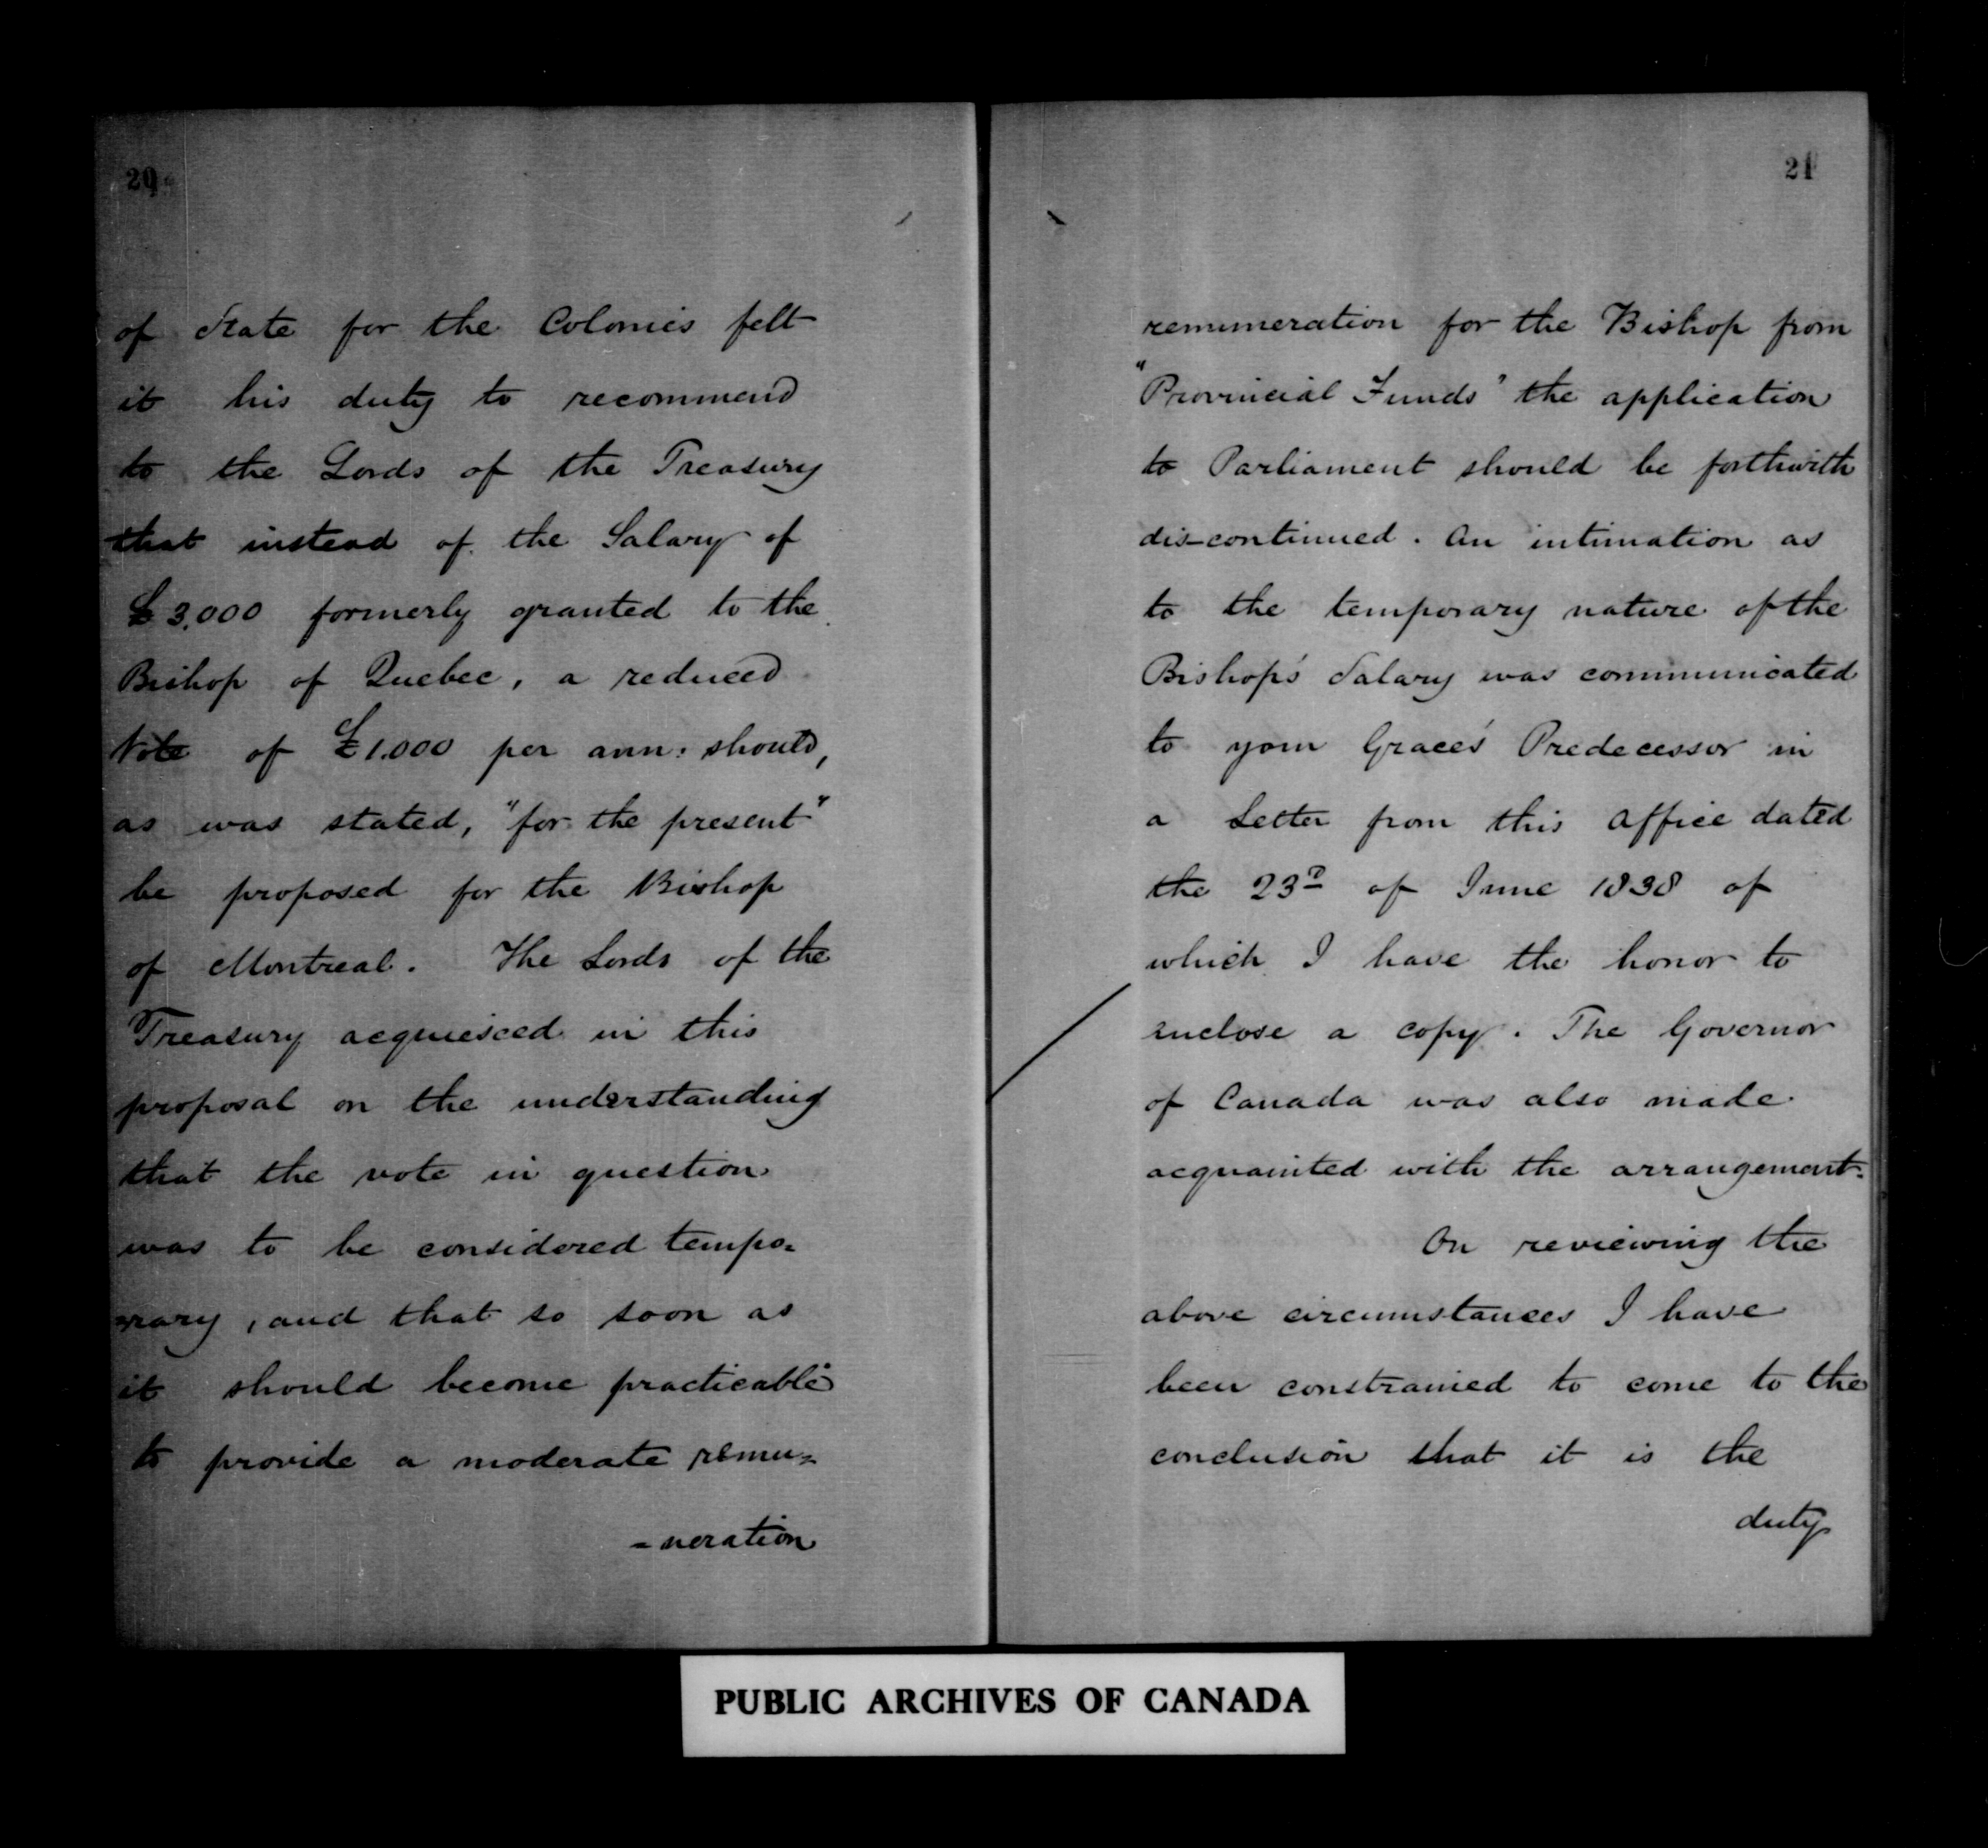 20
of State for the Colonies felt
it his duty to recommend
to the Lords of the Treasury
that instead of the Salary of
£3,000 formerly granted to the
Bishop of Quebec, a reduced
Vote of £1.000 per ann: should,
as was stated, "for the present"
be proposed for the Bishop
of Montreal. The Lords of the
Treasury acquiesced in this
proposal on the understanding
that the vote in question
was to be considered tempo=
rary, and that so soon as
it should become practicable
to provide a moderate remu=
=neration
21
remuneration for the Bishop from
"Provincial Funds" the application
to Parliament should be forthwith
dis-continued. An intimation as
to the temporary nature of the
Bishop's Salary was communicated
to your Grace's Predecessor in
a Letter from this Office dated
the 23d of June 1838 of
which I have the honor to
enclose a copy. The Governor
of Canada was also made
acquainted with the arrangement.
On reviewing the
above circumstances I have
been constrained to come to the
conclusion that it is the
duty
PUBLIC ARCHIVES OF CANADA